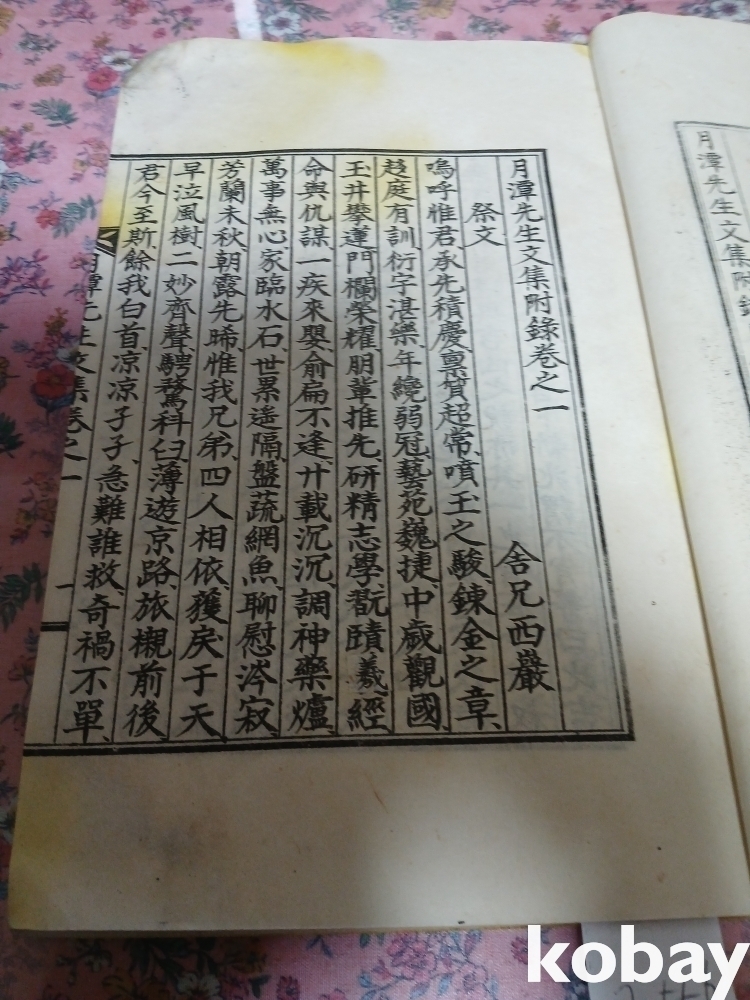 月潭先生文集附錄卷之一
祭文
舍兄西巖
嗚呼惟君承先積慶稟質超常噴玉之駿鍊金之章
趍庭有訓衍宇湛樂年纔弱冠藝苑巍捷中歲觀國
玉井攀蓮門欄榮耀朋輩推先硏精志學翫賾羲經
命與仇謀一疾來嬰俞扁不逢廾載沉沉調神藥爐
萬事無心家臨水石世累遙隔盤蔬網魚聊慰涔寂
芳蘭未秋朝露先晞惟我兄弟四人相依獲戾于天
早泣風樹二妙齊聲騁騖科臼薄遊京路旅櫬前後
君今至斯餘我白首凉凉孑孑急難誰救奇禍不單
月潭先生文集卷之一
一
月潭先生文集附錄
kobay